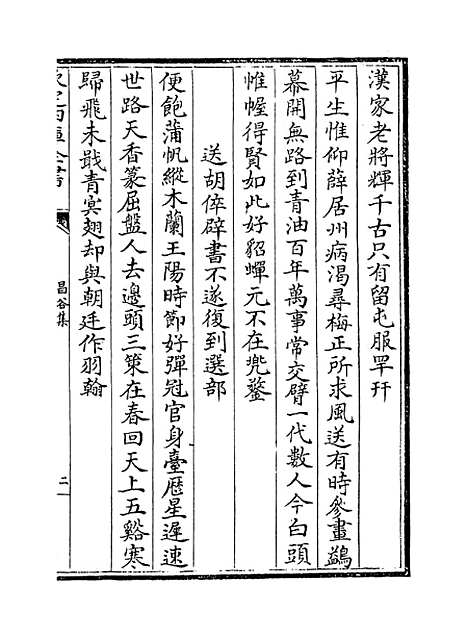 漢家老將輝千古只有留屯服䍐幵
平生惟仰薛居州病渴尋梅正所求風送有時參畫鷁
幕開無路到青油百年萬事常交臂一代數人今白頭
惟幄得賢如此好貂蟬元不在兠鍪
送胡倅辟書不遂復到選部
便飽蒲帆縱木蘭王陽時節好彈冠官身臺歴星遲速
世路天香篆屈盤人去邊頭三策在春回天上五谿寒
歸飛未戢青冥翅却與朝廷作羽翰
欽定四庫全書
昌谷集
二